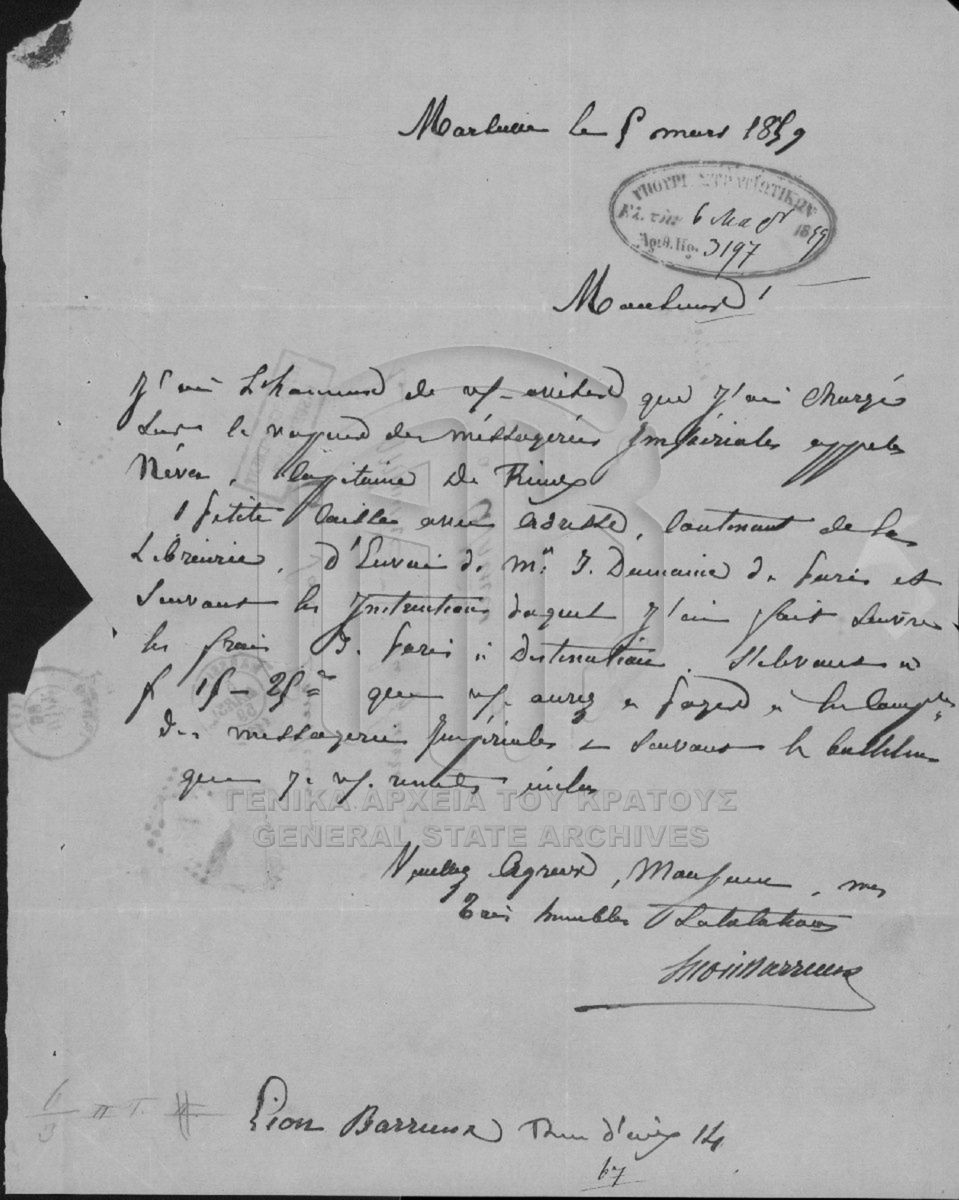 Marseille le 5 mars 1859
ΥΠΟΥΡΓ. ΣΤΡΑΤΙΩΤΙΚΩΝ
Ἐλ. τὴν 6 Μαρ 1859
Ἀριθ. Πρ. 3197
Monsieur
J'ai l'honneur de vs aviser que j'ai chargé
sur le vapeur des Méssageries Impériales appele
Capitaine De
1 petite caisse avec adresse, contenant de la
Librairie, d'Envoi de Mr. J. Dumaine de Paris et
Suivant les Instructions duquel j'ai fait suivre
les frais de Paris à destination, s'élevant à
que vs aurez à payer à la Compie
des messageries Impériales suivant le bulletin
que je vs remets inclus
ΓΕΝΙΚΑ ΑΡΧΕΙΑ ΤΟΥ ΚΡΑΤΟΥΣ
GENERAL STATE ARCHIVES
Veuillez Agréer, Monsieur, mes
très humbles Salutations
6/3 π. τ.
Barrême Rue d'aix 14
67